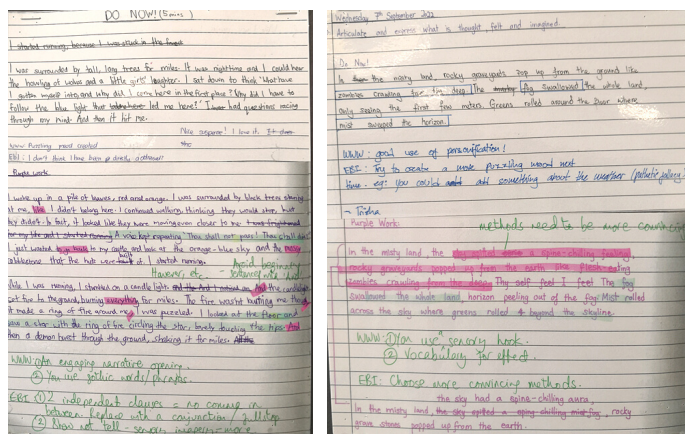 DO NOW! (5 mins)
I started running, because I was stuck in the forest
I was surrounded by tall, long trees for miles. It was nighttime and I could hear
the howling of wolves and a little girls' laughter. I sat down to think 'What have
I gotten myself into and why did I come here in the first place? Why did I have to
follow the blue light that led me here!' I had questions racing
through my mind. And then it hit me.
Nice suspense! I love it.
WWW Puzzling mood created
EBI: I don't think
Purple work
I woke up in a pile of leaves, red and orange. I was surrounded by black trees
at me, like I didn't belong here. I continued walking, thinking they would stop, but
they didn't. In fact, it looked like they were moving even closer to me
A voice kept repeating 'Thou shall not pass! Thou shall
I just wanted to go back to my castle and look at the orange-blue sky and the mossy
cobblestone that the huts were built it. I started running.
Avoid beginning
However, etc - sentences with 'And'
While I was running, I stumbled on a candle light And the candle
set fire to the ground, burning everything for miles. The fire wasn't burning me though
it made a ring of fire around me, I was puzzled. I looked at the floor and
saw a star with the ring of fire circling the star, barely touching the tips. And
then a demon burst through the ground, shaking it for miles.
WWW: ① An engaging narrative opening.
② You use gothic words/phrases.
EBI: ① 2 independent clauses = no comma in
between. Replace with a conjunction / fullstop
② Show not tell - sensory imagery = more
Wednesday 7th September 2022
Articulate and express what is thought, felt and imagined.
Do Now!
In the misty land, rocky graveyards pop up from the ground like
zombies crawling for deep. The fog swallowed the whole land,
only seeing the first few meters. Greens rolled around the where
mist swamped the horizon.
WWW: good use of personification!
EBI: Try to create a more puzzling mood next
time - eg: you could add something about the weather (pathetic fallacy)
- Trisha
Purple Work:
methods need to be more convincing
In the misty land, the sky spilled a spine-chilling feeling,
rocky graveyards popped up from the earth like flesh-eating
zombies crawling from the deep. Thy self feel I feel The fog
swallowed the whole land horizon peeling out of the fog. Mist rolled
across the sky where greens rolled beyond the skyline.
WWW: ① You use a sensory hook.
② Vocabulary for effect.
EBI: Choose more convincing methods.
the sky had a spine-chilling aura,
In the misty land, the sky spilled a spine-chilling rocky
grave stones popped up from the earth.